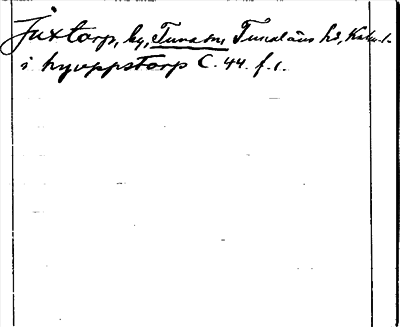 Juxtorp, by, Tuna sn, Tunaläns hd, Kalm. l.
i hyvppstorp C. 44. f. 1.